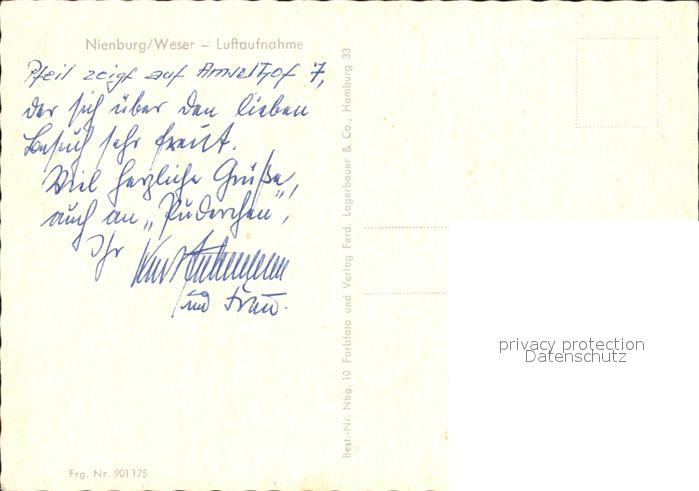 Nienburg/Weser – Luftaufnahme
Pfeil zeigt auf 7,
der sich über den lieben
Besuch sehr freut.
Viel herzliche Grüße,
auch an „Puderchen",
Ihr Kurt
und Frau.
Best.-Nr. Nbg. 10 Farbfoto und Verlag Ferd. Lagerbauer & Co., Hamburg 33
Frg. Nr. 901175
privacy protection
Datenschutz